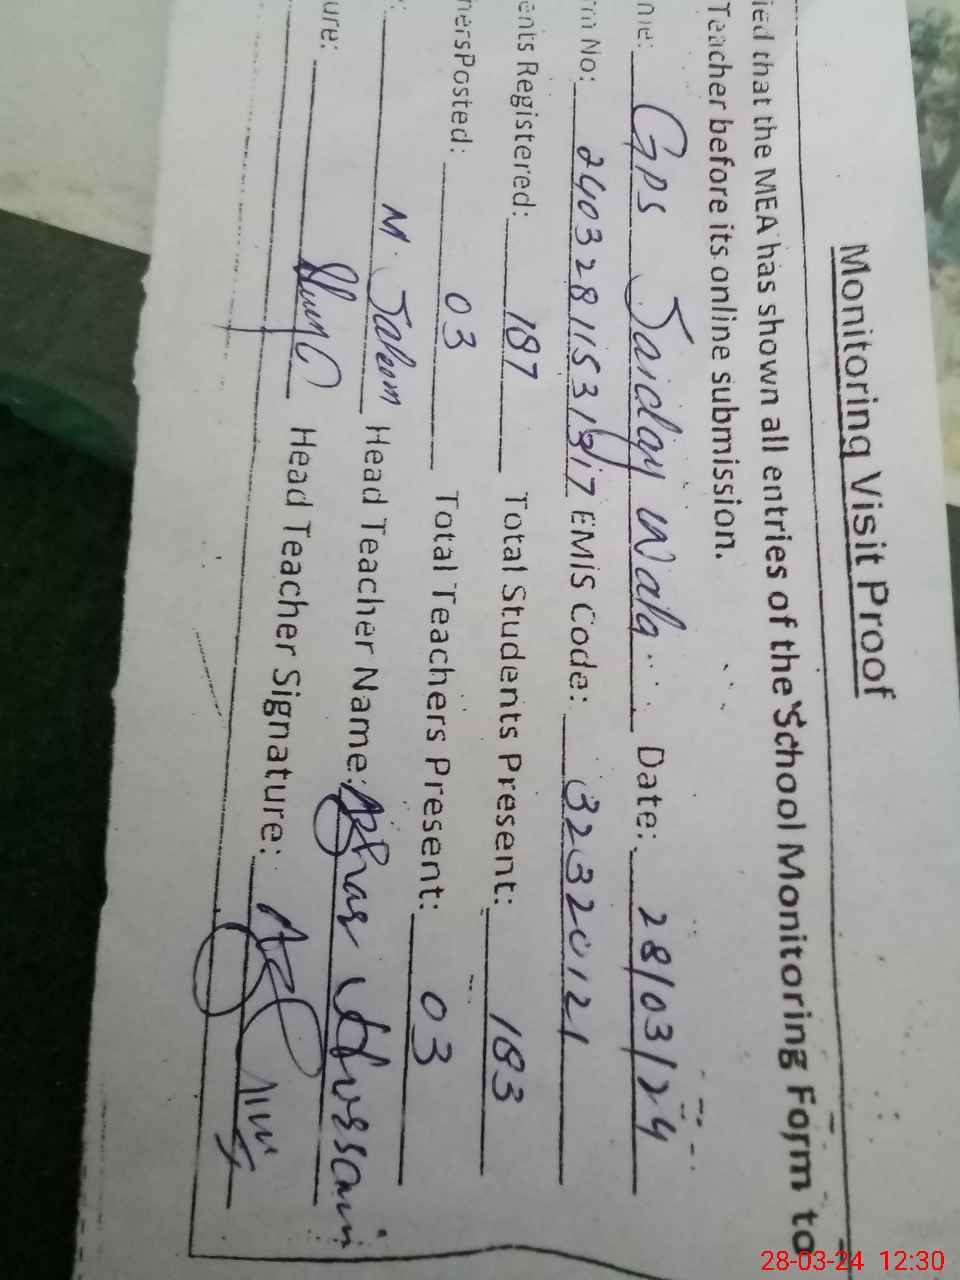 Monitoring Visit Proof
ied that the MEA has shown all entries of the School Monitoring Form to
Teacher before its online submission.
me: GPS Saiday Wala Date: 28/03/24
rm No: EMIS Code: 32320121
ents Registered: 187 Total Students Present: 183
hersPosted: 03 Total Teachers Present: 03
: M. Saleem Head Teacher Name: Azhar Hussain
ure: Head Teacher Signature:
28-03-24 12:30